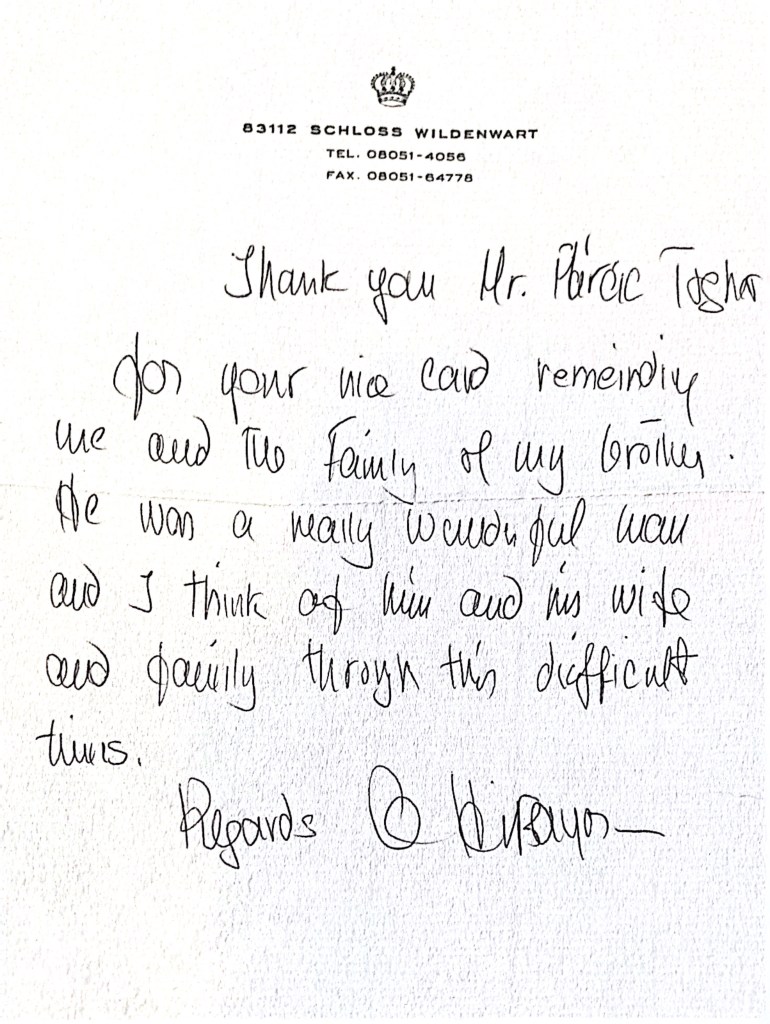 83112 SCHLOSS WILDENWART
TEL. 08051-4056
FAX. 08051-64778
Thank you Mr. Páraic
for your nice card remeinding
me and the Family of my brother.
He was a really wonderful man
and I think of him and his wife
and family through this difficult
times.
Regards